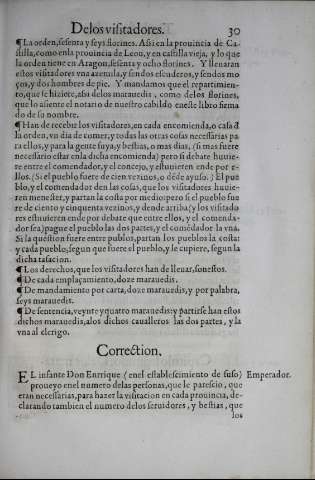 Delos visitadores. 30
¶La orden, sesenta y seys florines. Assi en la prouincia de Ca-
stilla, como enla prouincia de Leon, y en castilla vieja, y lo que
la orden tiene en Aragon, sesenta y ocho florines. Y lleuaran
estos visitadores vna azemila, y sendos escuderos, y sendos mo
ços, y dos hombres de pie. Y mandamos que el repartimien-
to, que se hiziere, assi delos marauedis, como delos florines,
que lo asiente el notario de nuestro cabildo eneste libro firma
do de su nombre.
¶Han de recebir los visitadores, en cada encomienda, o casa ď
la orden, vn dia de comer, y todas las otras cosas necessarias pa
ra ellos, y para la gente suya, y bestias, o mas dias, (si mas fuere
necessario estar enla dicha encomienda) pero si debate huuie-
re entre el comendador, y el concejo, y estuuieren ende por e-
llos. (Si el pueblo fuere de cien vezinos, o dēde ayuso.) El pue
blo, y el comendador den las cosas, que los visitadores huuie-
ren menester, y partan la costa por medio: pero si el pueblo fue
re de ciento y cinquenta vezinos, y dende arriba (y los visitado
res estuuieren ende por debate que entre ellos, y el comenda-
dor sea) pague el pueblo las dos partes, y el comēdador la vna.
Si la question fuere entre pueblos, partan los pueblos la costa:
y cada pueblo, segun que fuere el pueblo, y le cupiere, segun la
dicha tasacion.
¶Los derechos, que los visitadores han de lleuar, son estos.
¶De cada emplaçamiento, doze marauedis.
¶De mandamiento por carta, doze marauedis, y por palabra,
seys marauedis.
¶De sentencia, veynte y quatro marauedis: y partirse han estos
dichos marauedis, alos dichos caualleros las dos partes, y la
vna al clerigo.
Correction.
EL infante Don Enrrique (enel establescimiento de suso) Emperador.
proueyo enel numero delas personas, que le parescio, que
eran necessarias, para hazer la visitacion en cada prouincia, de-
clarando tambien el numero delos seruidores, y bestias, que
los